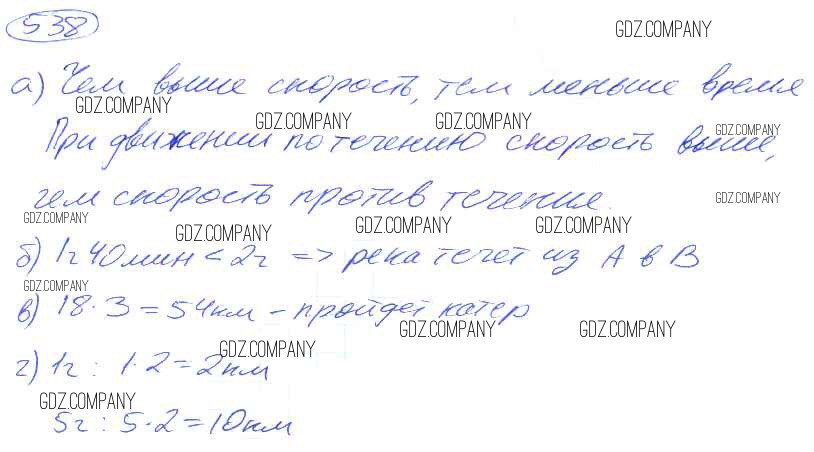 538 GDZ.COMPANY
а) Чем выше скорость, тем меньше время
GDZ.COMPANY GDZ.COMPANY GDZ.COMPANY GDZ.COMPANY
При движении по течению скорость выше,
чем скорость против течения.
GDZ.COMPANY
GDZ.COMPANY GDZ.COMPANY GDZ.COMPANY GDZ.COMPANY
б) 1ч 40мин < 2ч => река течет из А в В
GDZ.COMPANY
в) 18·3=54км - пройдет катер
GDZ.COMPANY GDZ.COMPANY
GDZ.COMPANY
г) 1ч : 1·2=2км
GDZ.COMPANY
5ч : 5·2=10км